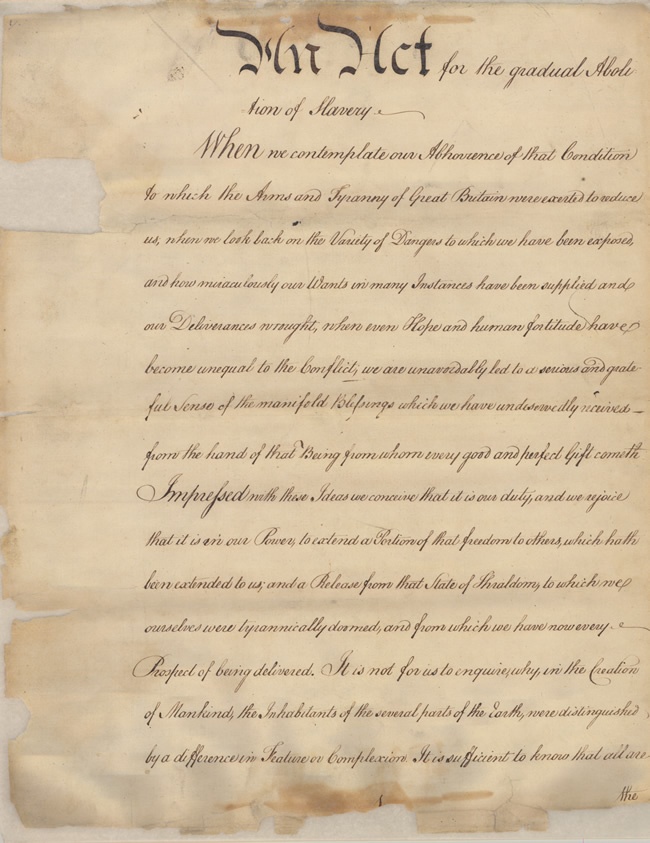 An Act for the gradual Aboli
tion of Slavery
When we contemplate our Abhorrence of that Condition
to which the Arms and Tyranny of Great Britain were exerted to reduce
us, when we look back on the Variety of Dangers to which we have been exposed,
and how miraculously our Wants in many Instances have been supplied and
our Deliverances wrought, when even Hope and human fortitude have
become unequal to the Conflict; we are unavoidably led to a serious and grate
ful Sense of the manifold Blessings which we have undeservedly received
from the hand of that Being from whom every good and perfect Gift cometh
Impressed with these Ideas we conceive that it is our duty, and we rejoice
that it is in our Power, to extend a Portion of that freedom to others, which hath
been extended to us; and a Release from that State of Thraldom, to which we
ourselves were tyrannically doomed, and from which we have now every
Prospect of being delivered. It is not for us to enquire, why, in the Creation
of Mankind, the Inhabitants of the several parts of the Earth, were distinguished
by a difference in Feature or Complexion. It is sufficient to know that all are
the